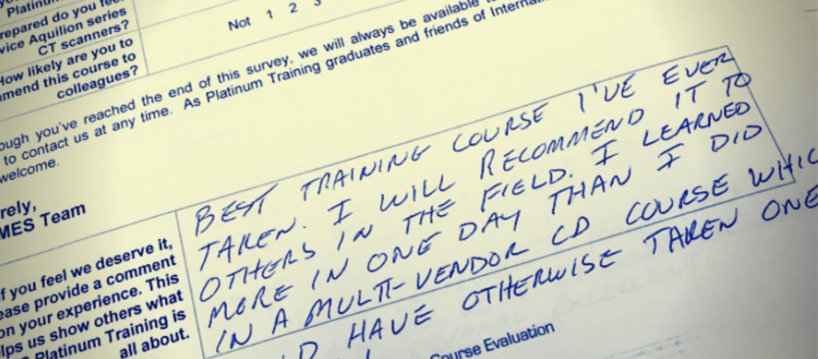 Platinum
repared do you feel
vice Aquilion series
CT scanners?
Not 1 2 3
How likely are you to
mend this course to
colleagues?
ough you've reached the end of this survey, we will always be available
to contact us at any time. As Platinum Training graduates and friends of Internat
welcome.
rely,
MES Team
f you feel we deserve it,
ease provide a comment
on your experience. This
lps us show others what
Platinum Training is
all about.
BEST TRAINING COURSE I'VE EVER
TAKEN. I WILL RECOMMEND IT TO
OTHERS IN THE FIELD. I LEARNED
MORE IN ONE DAY THAN I DID
IN A MULTI-VENDOR CD COURSE WHIC
D HAVE OTHERWISE TAKEN ONE
Course Evaluation